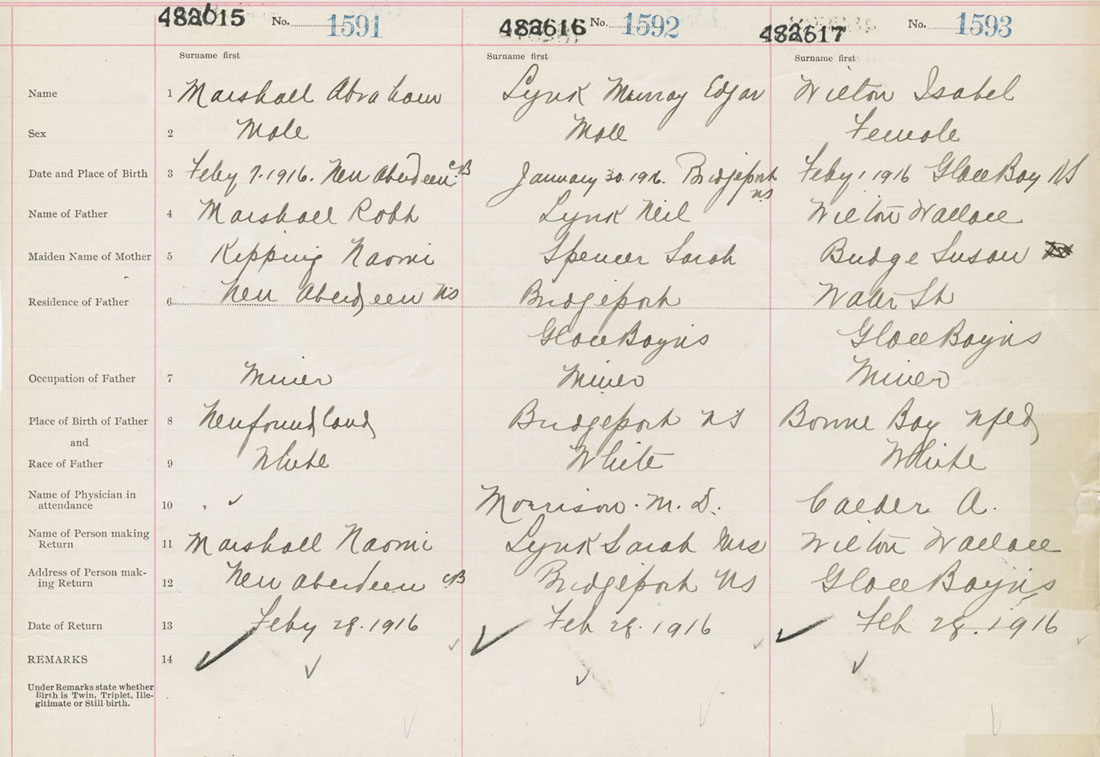 482615 No. 1591 482616 No. 1592 482617 No. 1593
Surname first Surname first Surname first
Name 1 Marshall Abraham Lynk Murray Edgar Wilton Isabel
Sex 2 Male Male Female
Date and Place of Birth 3 Feby 7. 1916. New Aberdeen CB January 30. 1916. Bridgeport NS Feby 1 1916 Glace Bay NS
Name of Father 4 Marshall Robt Lynk Neil Wilton Wallace
Maiden Name of Mother 5 Kipping Naomi Spencer Sarah Budge Susan
Residence of Father 6 New Aberdeen NS Bridgeport Water St
Glace Bay NS Glace Bay NS
Occupation of Father 7 Miner Miner Miner
Place of Birth of Father 8 Newfoundland Bridgeport NS Bonne Bay Nfld
and
Race of Father 9 White White White
Name of Physician in
attendance 10 Morrison. M. D. Calder A.
Name of Person making
Return 11 Marshall Naomi Lynk Sarah Mrs Wilton Wallace
Address of Person mak-
ing Return 12 New Aberdeen CB Bridgeport NS Glace Bay NS
Date of Return 13 Feby 28. 1916 Feb 28. 1916 Feb 28. 1916
REMARKS 14
Under Remarks state whether
Birth is Twin, Triplet, Ille-
gitimate or Still-birth.